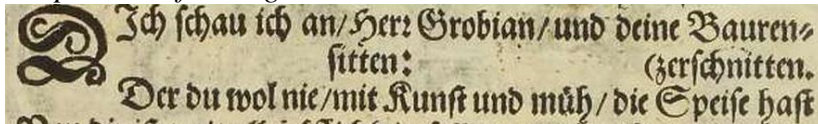 DIch schau ich an/Herr Grobian/und deine Bauren-
sitten: (zerschnitten.
Der du wol nie/mit Kunst und müh/die Speise hast